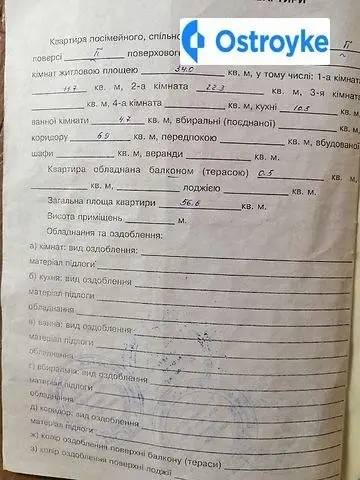 КВАРТИРИ
Ostroyke
Квартира посімейного, спільно
поверсі II поверхового II
кімнат житловою площею 34.0 кв. м, у тому числі: 1-а кімната
11.7 кв. м, 2-а кімната 22.3 кв. м, 3-я кімната
кв. м, 4-а кімната кв. м, кухні 10.5 кв. м,
ванної кімнати 4.7 кв. м, вбиральні (поєднаної) кв. м,
коридору 6.9 кв. м, передпокою кв. м, вбудованої
шафи кв. м, веранди кв. м.
Квартира обладнана балконом (терасою) 0.5 кв. м,
кв. м, лоджією кв. м.
Загальна площа квартири 56.6 кв. м.
Висота приміщень м.
Обладнання та оздоблення:
а) кімнат: вид оздоблення
матеріал підлоги
б) кухня: вид оздоблення
матеріал підлоги
обладнання
в) ванна: вид оздоблення
матеріал підлоги
обладнання
г) вбиральня: вид оздоблення
матеріал підлоги
обладнання
д) коридор: вид оздоблення
матеріал підлоги
ж) колір оздоблення поверхні балкону (тераси)
з) колір оздоблення поверхні лоджії